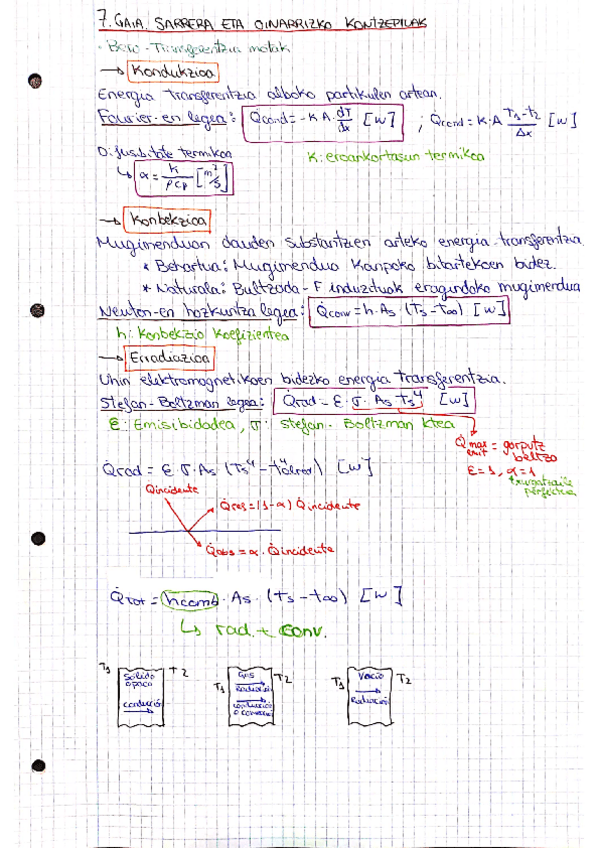 7. GAIA. SARRERA ETA OINARRIZKO KONTZEPTUAK
· Bero-Transferentzia motak
→ Kondukzioa
Energia transferentzia alboko partikulen artean.
Fourier-en legea: Q̇cond = -K A · dT/dx [W] ; Q̇cond = K · A T1-T2/Δx [W]
Difusibitate termikoa K: eroankortasun termikoa
↳ α = K/ρCp [m²/s]
→ Konbekzioa
Mugimenduan dauden substantzien arteko energia-transferentzia
* Behartua: Mugimendua Kanpoko bitartekoen bidez.
* Naturala: Bultzada-F induzituek eragindako mugimendua
Newton-en hozkuntza legea: Q̇conv = h · As · (Ts - T∞) [W]
h: Konbekzio koefizientea
→ Erradiazioa
Uhin elektromagnetikoen bidezko energia transferentzia.
Stefan-Boltzman legea: Q̇rad = ε · σ · As Ts⁴ [W]
ε: Emisibidadea, σ: Stefan-Boltzman Ktea
Q̇max emit = gorputz beltza
ε=1, α=1
xurgatzaile perfektua
Q̇rad = ε σ · As (Ts⁴ - T⁴alred) [W]
Q̇incidente
Q̇res = (1-α) Q̇incidente
Q̇abs = α · Q̇incidente
Q̇tot = hcomb · As · (Ts - T∞) [W]
↳ rad. + conv.
T1 Sólido opaco T2 T1 Gas T2 T1 Vacío T2
conducción Radiación Radiación
conducción o convección